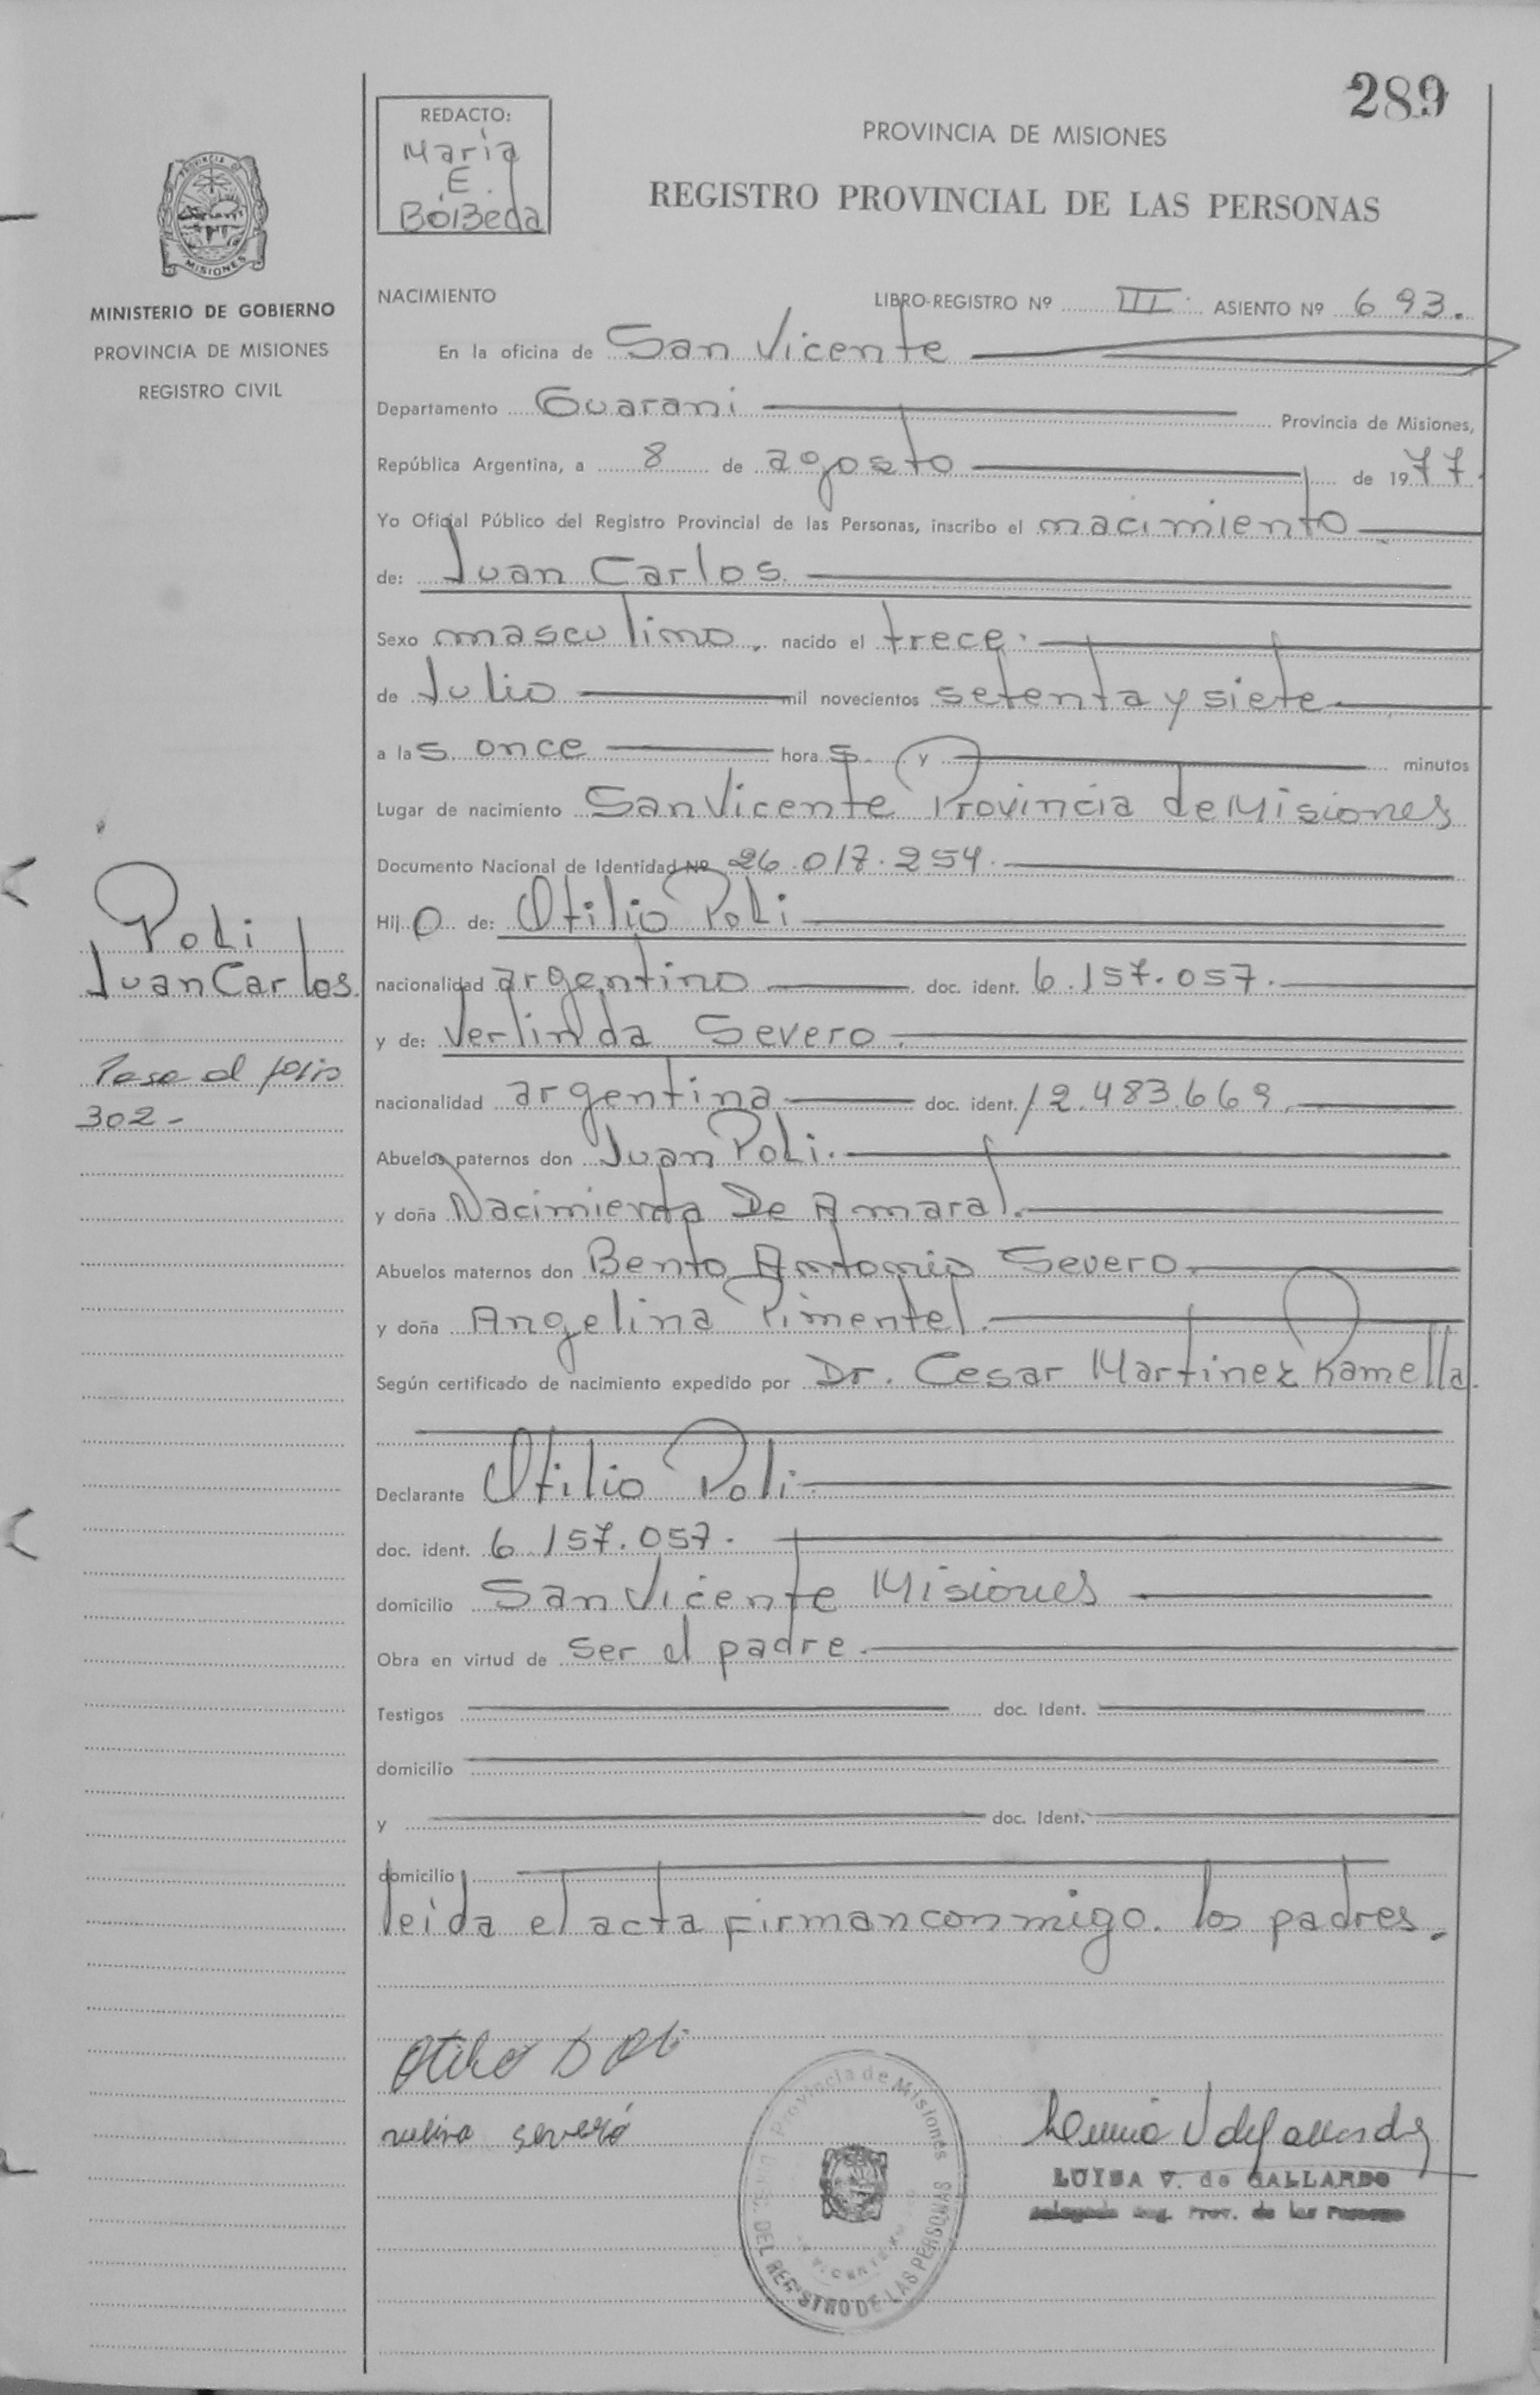 289
REDACTO:
Maria
E.
BóiBeda
PROVINCIA DE MISIONES
REGISTRO PROVINCIAL DE LAS PERSONAS
PROVINCIA DE
MISIONES
MINISTERIO DE GOBIERNO
PROVINCIA DE MISIONES
REGISTRO CIVIL
NACIMIENTO LIBRO-REGISTRO Nº III. ASIENTO Nº 693.
En la oficina de San Vicente
Departamento Guarani Provincia de Misiones,
República Argentina, a 8 de agosto de 1977.
Yo Oficial Público del Registro Provincial de las Personas, inscribo el nacimiento
de: Juan Carlos.
Sexo masculino, nacido el trece.
de Julio mil novecientos setenta y siete
a las once horas y minutos
Lugar de nacimiento San Vicente Provincia de Misiones
Documento Nacional de Identidad Nº 26.017.254.
Hijo de: Otilio Poli
Poli
Juan Carlos.
nacionalidad argentino doc. ident. 6.157.057.
y de: Verlinda Severo.
Pase al folio
302-
nacionalidad argentina doc. ident. 12.483.669.
Abuelos paternos don Juan Poli.
y doña Nacimienta De Amaral.
Abuelos maternos don Bento Antonio Severo.
y doña Angelina Pimentel.
Según certificado de nacimiento expedido por Dr. Cesar Martinez Ramella.
Declarante Otilio Poli.
doc. ident. 6.157.057.
domicilio San Vicente Misiones
Obra en virtud de ser el padre.
Testigos doc. Ident.
domicilio
y doc. Ident.
domicilio
leída el acta firman conmigo. los padres.
severo
Provincia de Misiones
DEL REGISTRO DE LAS PERSONAS
LUISA V. de GALLARDO
Delegada Reg. Prov. de las Personas